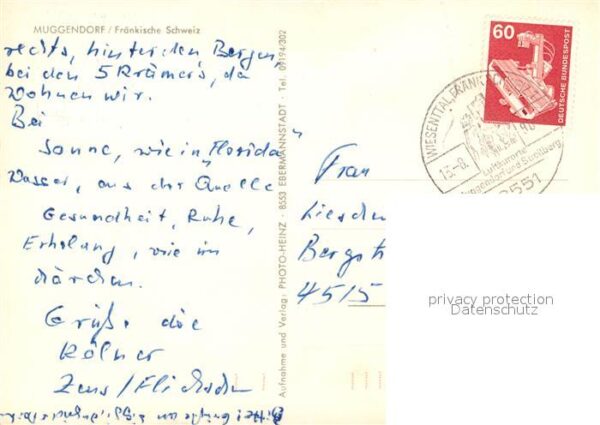 MUGGENDORF / Fränkische Schweiz
rechts, hinter den Bergen,
bei den 5 Krämers, da
Wohnen wir.
Bei
Sonne, wie in "Florida"
Wasser, aus der Quelle
Gesundheit, Ruhe,
Erholung, wie im
Märchen.
Grüße die
Kölner
Zens /
Bitte!
Aufnahme und Verlag: PHOTO-HEINZ · 8553 EBERMANNSTADT · Tel. 09194/302
60
DEUTSCHE BUNDESPOST
WIESENTTAL
Luftkurorte
Muggendorf und Streitberg
8551
Frau
Bergst
4515
privacy protection
Datenschutz